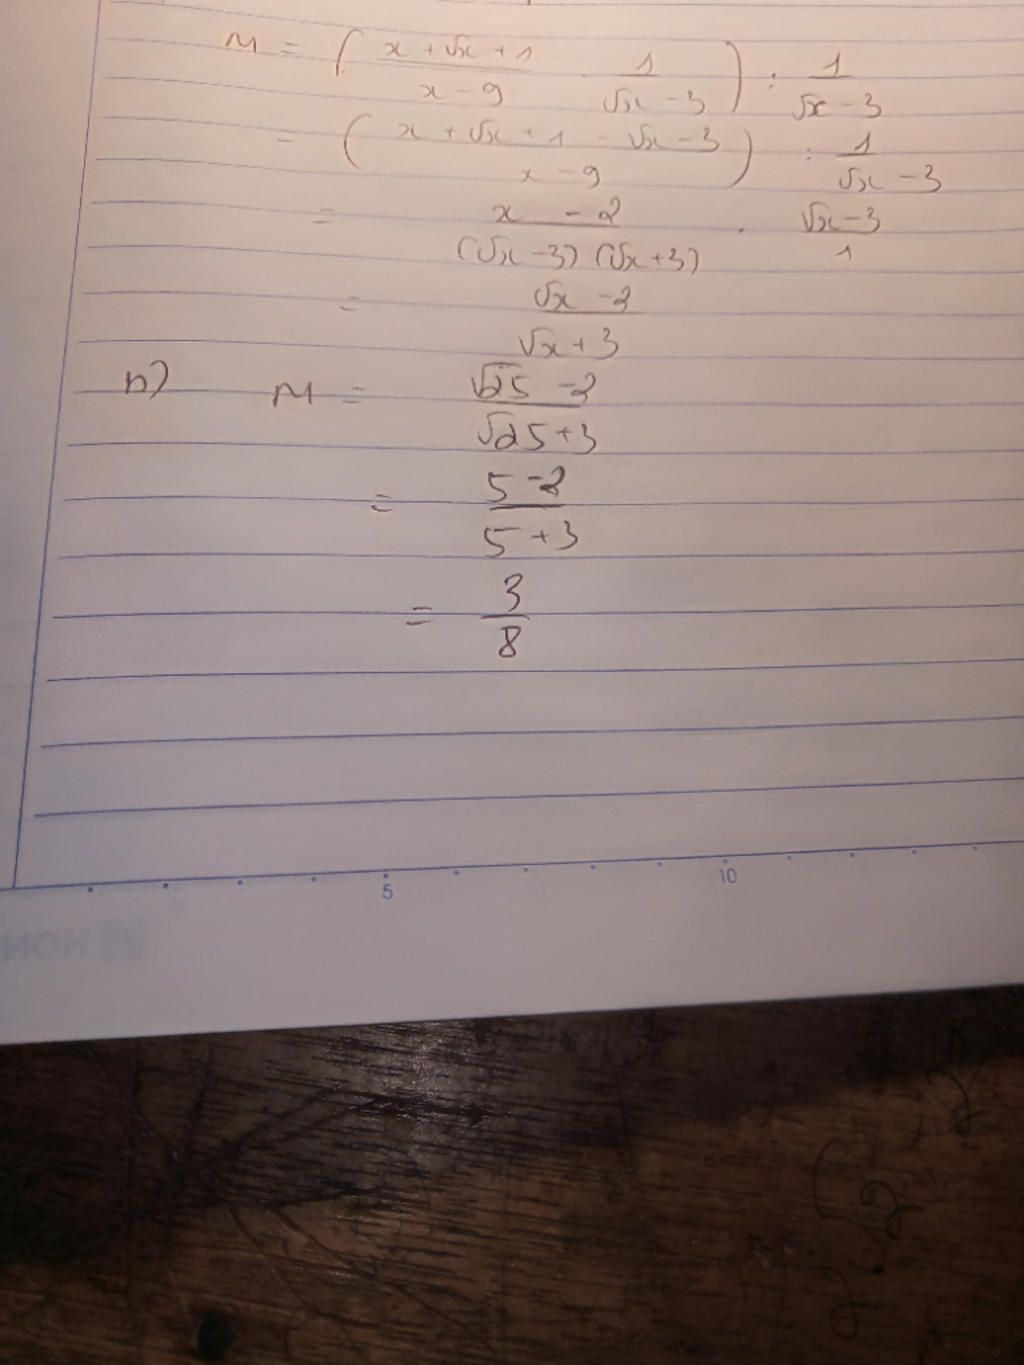 M = ( x + √x + 1 / x - 9 - 1 / √x - 3 ) : 1 / √x - 3
= ( x + √x + 1 - √x - 3 / x - 9 ) : 1 / √x - 3
= x - 2 / (√x - 3) (√x + 3) . √x - 3 / 1
= √x - 2 / √x + 3
b) M = √25 - 2 / √25 + 3
= 5 - 2 / 5 + 3
= 3 / 8
5 10